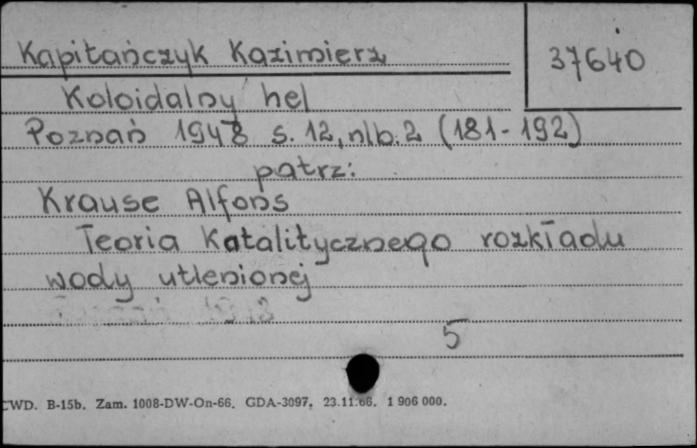 Kapitańczyk Kazimierz
37640
Koloidalny hel
Poznań 1948 s. 12, nlb. 2 (181-192)
patrz:
Krause Alfons
Teoria Katalitycznego rozkładu
wody utlenionej
5
CWD. B-15b. Zam. 1008-DW-On-66. GDA-3097. 23.11.66. 1 906 000.